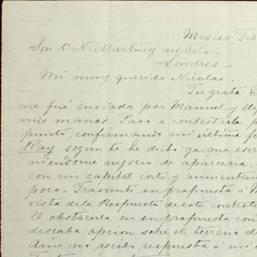 Mexico Feb
Sor D. N. Martínez del Rio
Londres.
Mi muy querido Nicolas.
Tu grata
me fué enviada por Manuel y
mis manos. Paso a contestarla
punto, confirmando mi última
Kay segun te he dicho ya que
niendome negocio de aparceria,
con un capital corto y aumentan
poco. Trasmití su propuesta á
vista de la Respuesta de este contesté
El obstaculo en su propuesta con
deseaba opcion sobre el terreno de
Aun no recibo respuesta á mi